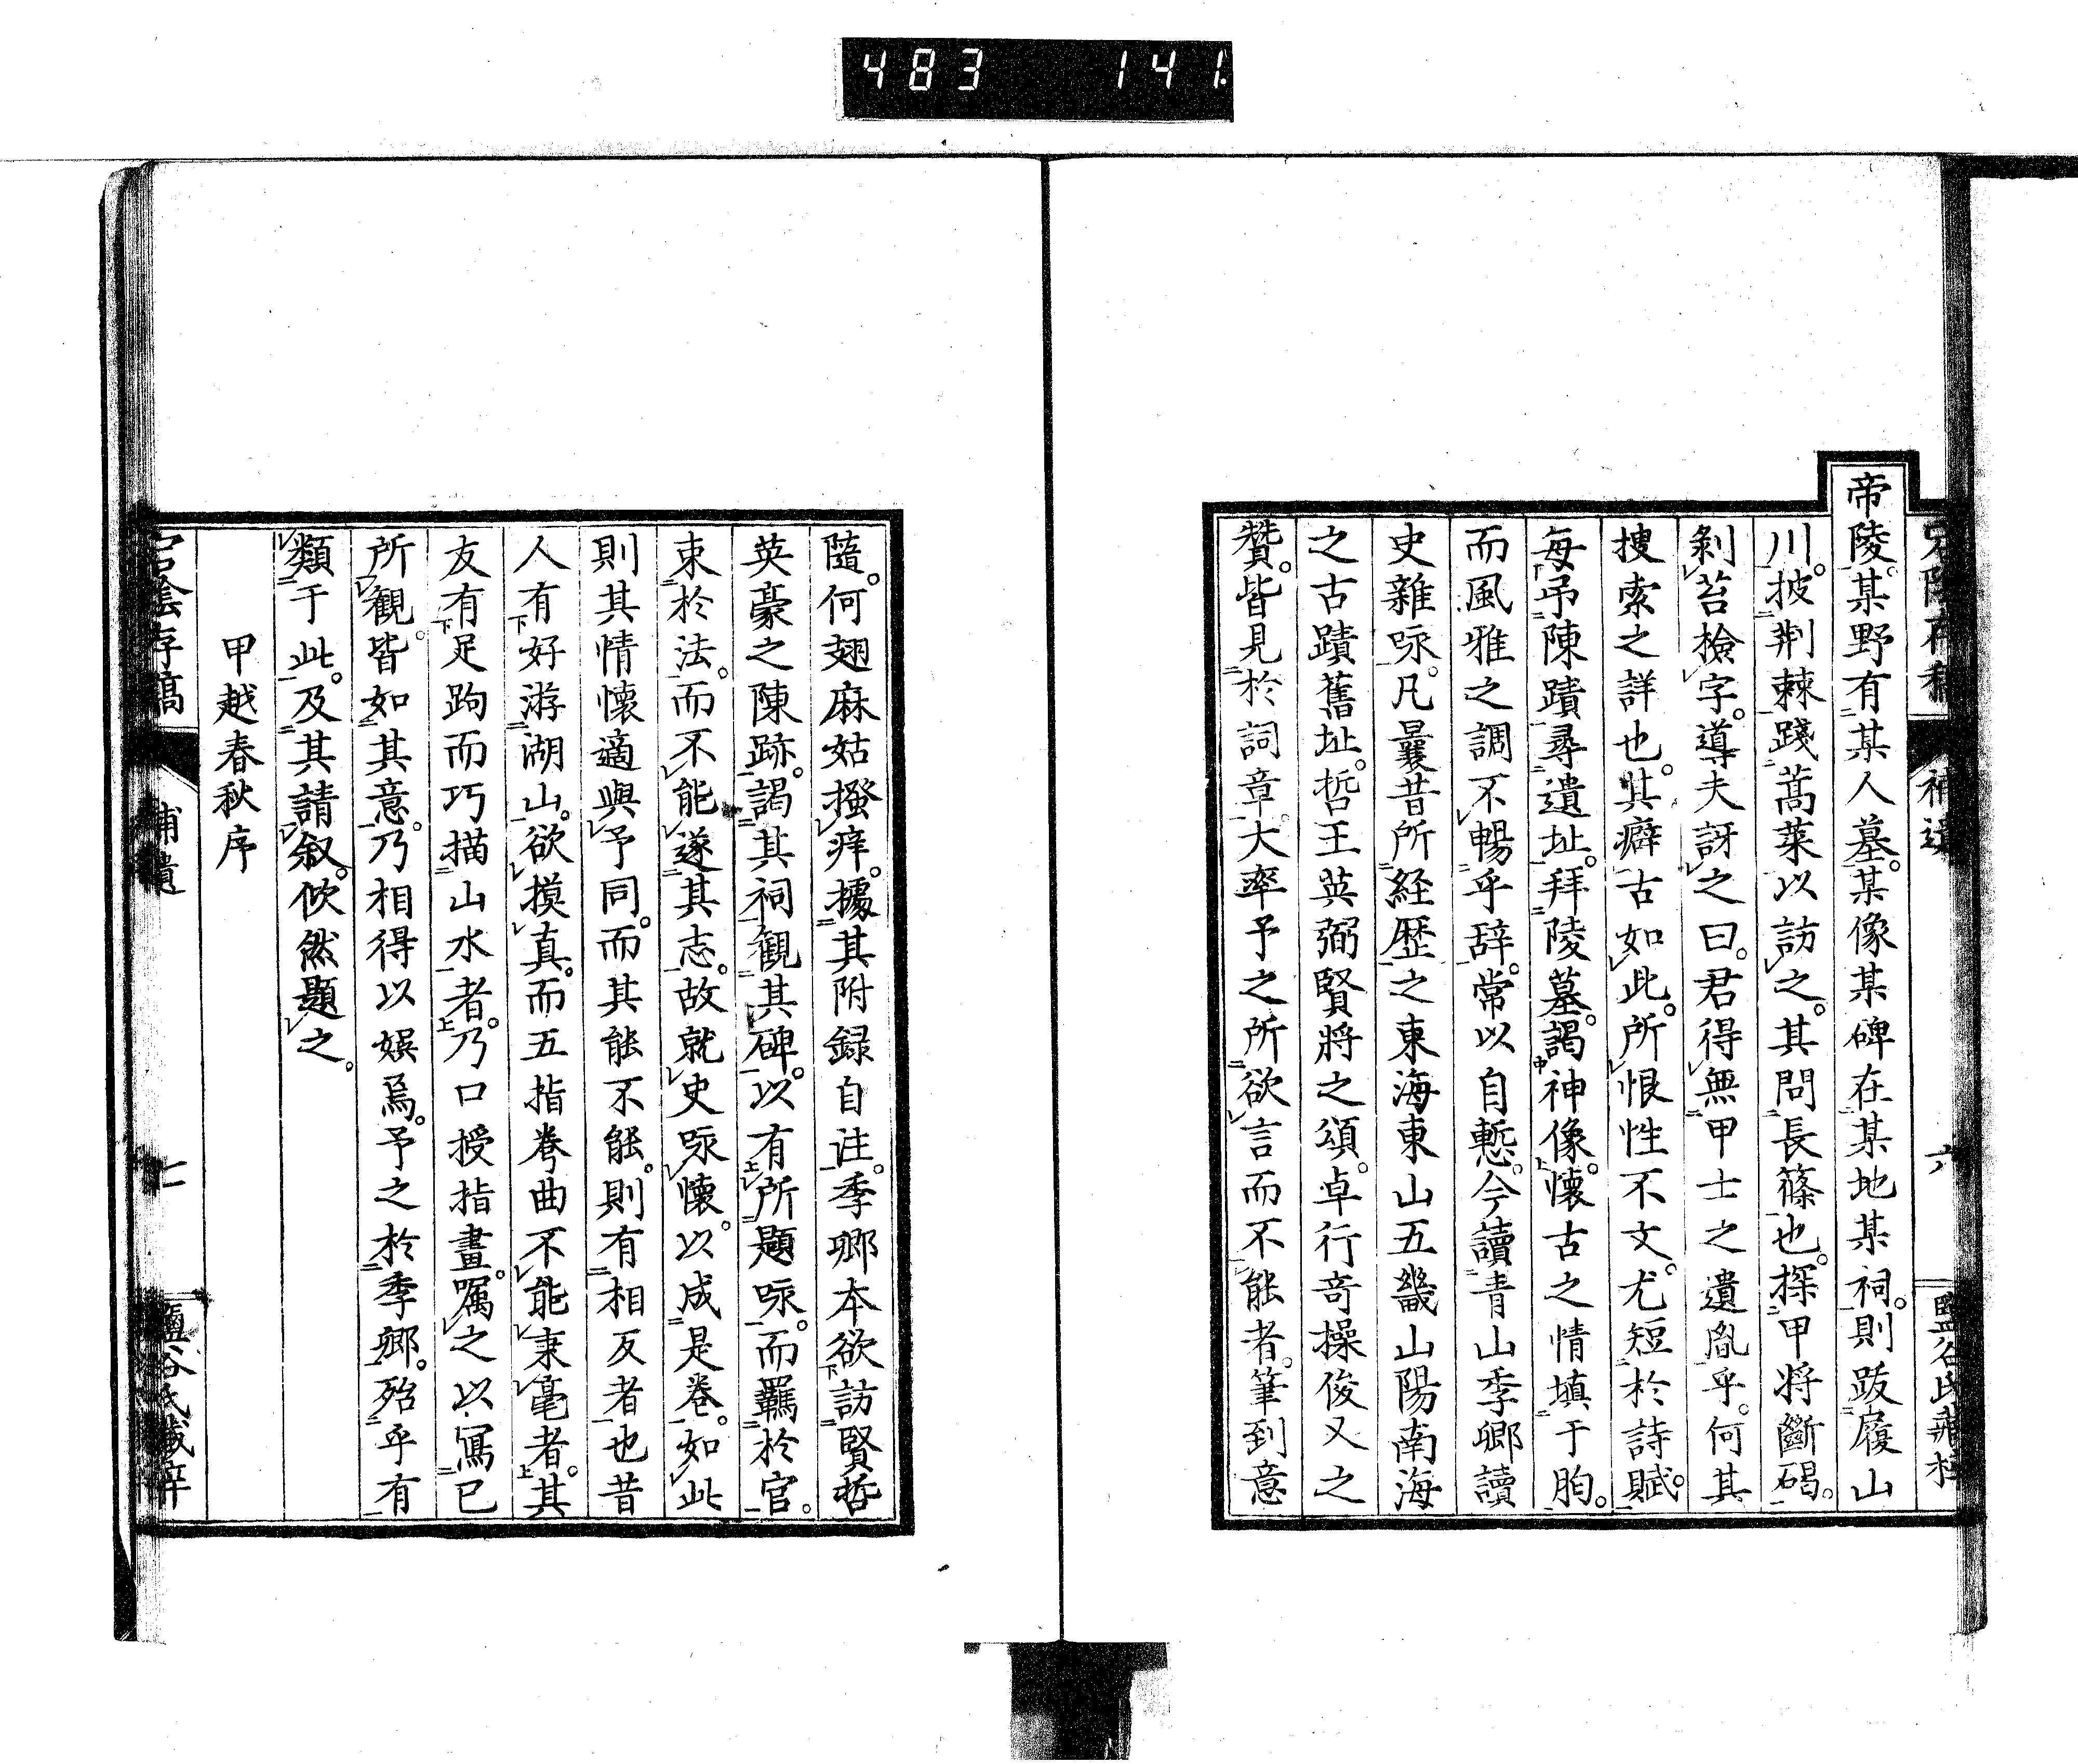 483 141.
帝陵。某野有某人墓。某像某碑在某地某祠。則跋履山
川。披荆棘踐蒿萊以訪之。其問長篠也。探甲将斷碣。
剝苔檢字。導夫訝之曰。君得無甲士之遺胤乎。何其
捜索之詳也。其癖古如此。所恨性不文。尤短於詩賦。
每弔陳蹟尋遺址。拜陵墓。謁神像。懷古之情填于胸。
而風雅之調不暢乎辞。常以自慙。今讀青山季卿讀
史雑咏。凡曩昔所経歴之東海東山五畿山陽南海
之古蹟舊址。哲王英弼賢將之頌。卓行奇操俊乂之
贊。皆見於詞章。大率予之所欲言而不能者。筆到意
隨。何翅麻姑搔痒。據其附録自注。季卿本欲訪賢哲
英豪之陳跡。謁其祠觀其碑。以有所題咏。而羈於官。
束於法。而不能遂其志。故就史咏懷。以成是卷。如此
則其情懷適與予同。而其能不能。則有相反者也昔
人有好游湖山。欲摸真。而五指拳曲不能秉毫者。其
友有足跔而巧描山水者。乃口授指畫。嘱之以寫已
所觀。皆如其意。乃相得以娯焉。予之於季卿。殆乎有
類于此。及其請叙。欣然題之。
甲越春秋序
宕陰存稿 補遺 七